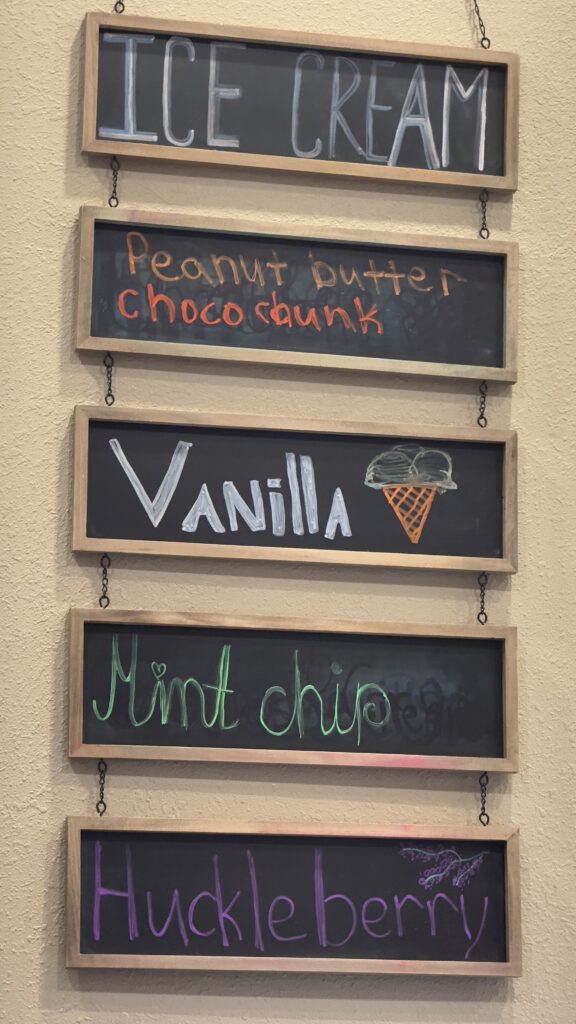 ICE CREAM
Peanut butter
choco chunk
Vanilla
Mint chip
Huckleberry